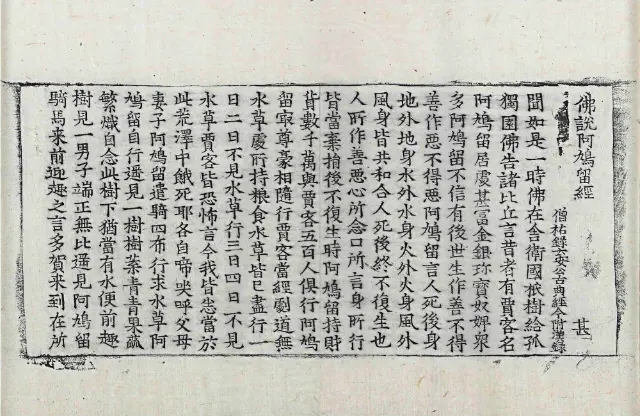 佛說阿鳩留經 甚
僧祐錄云安公古典經今附漢錄
聞如是一時佛在舍衛國祇樹給孤
獨園佛告諸比丘言昔者有賈客名
阿鳩留居處甚富金銀珎寶奴婢眾
多阿鳩留不信有後世生作善不得
善作惡不得惡阿鳩留言人死後身
地外地身水外水身火外火身風外
風身皆共和合人死後終不復生也
人所作善惡心所念口所言身所行
皆當棄捐後不復生時阿鳩留持財
貨數千萬與賈客五百人俱行阿鳩
留寂尊豪相隨行賈客當經劇道無
水草處所持粮食水草皆已盡行一
日二日不見水草行三日四日不見
水草賈客皆恐怖言今我皆當於
此荒澤中餓死耶各自啼哭呼父母
妻子阿鳩留遣騎四布行求水草阿
鳩留自行遥見一樹樹葉青青果蓏
繁熾自念此樹下猶當有水便前趣
樹見一男子端正無比遥見阿鳩留
騎馬来前迎趣之言多賀来到在所